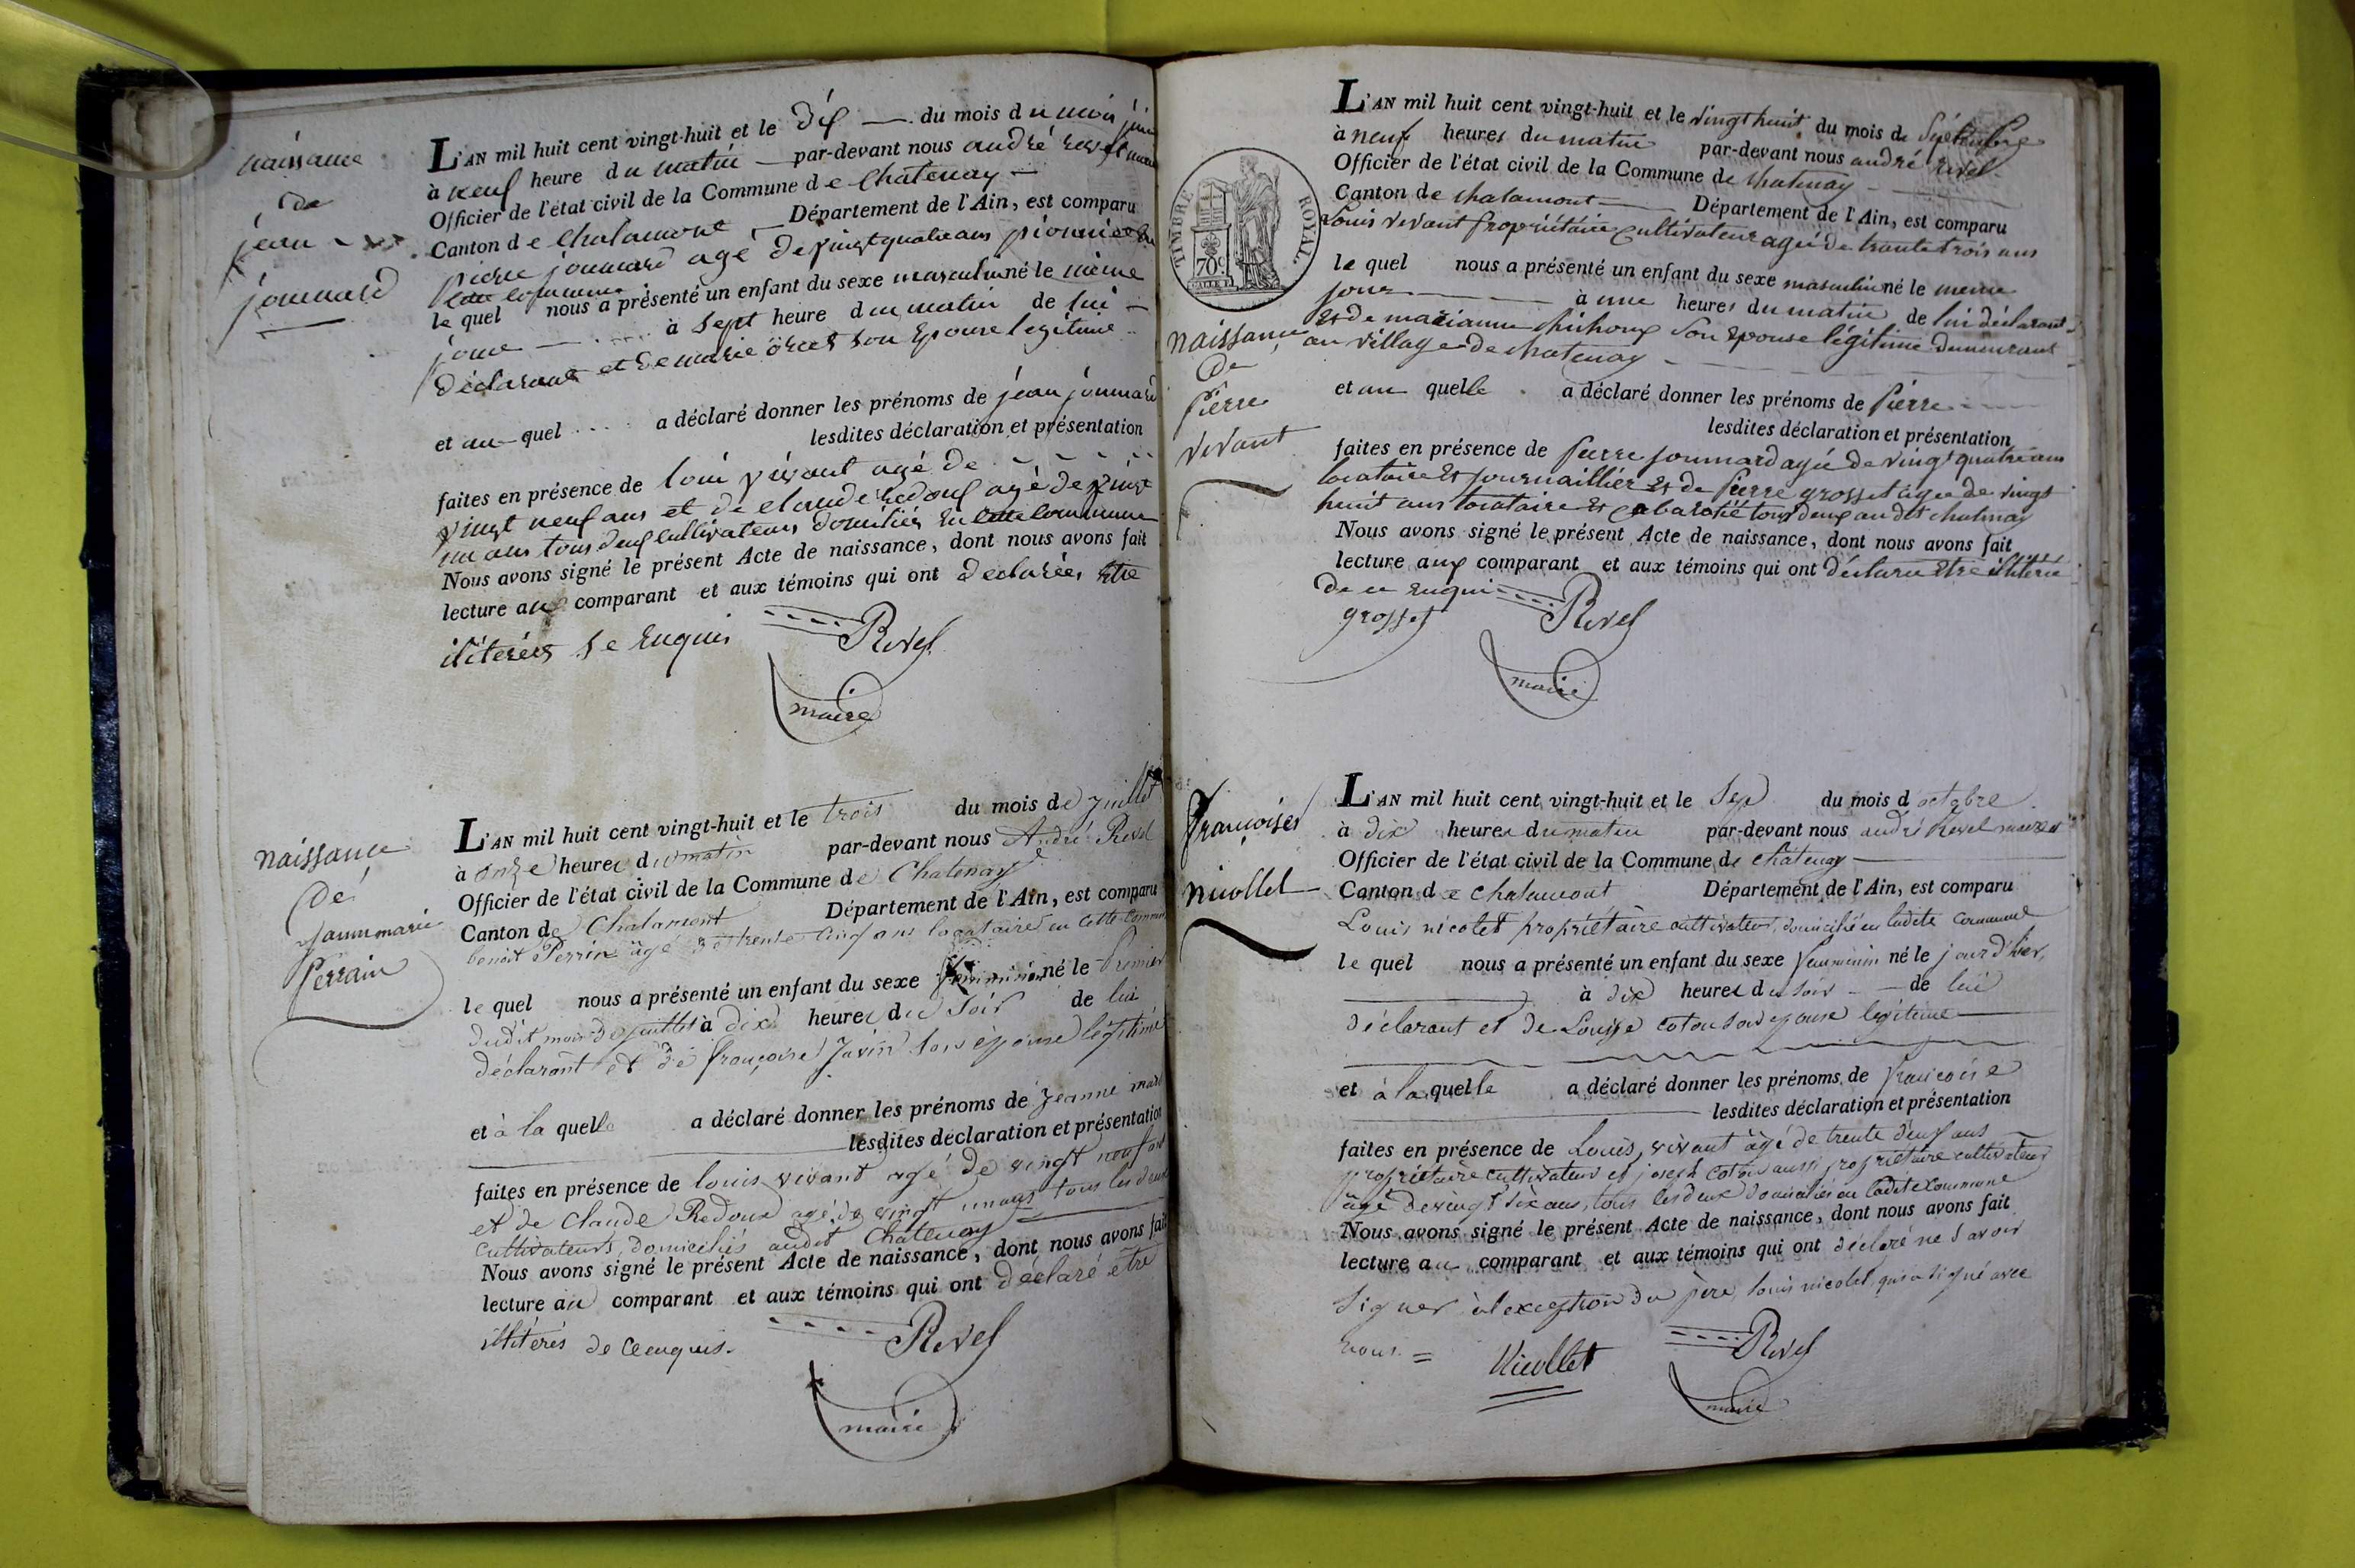 naissance
de
jean
joumard
L'AN mil huit cent vingt-huit et le dix du mois du moi juin
à neuf heure du matin par-devant nous andré revel maire
Officier de l'état civil de la Commune de Chatenay
Canton de Chalamont Département de l'Ain, est comparu
pierre joumard agé de vingt quatre ans
cette commune
le quel nous a présenté un enfant du sexe masculin né le même
jour à sept heure du matin de lui
déclarant et de marie son Epouse legitime
et au quel a déclaré donner les prénoms de jean joumard
lesdites déclaration et présentation
faites en présence de loui vivant agé de
vingt neuf ans et de claude redoux agé de vingt
un ans tous deux cultivateurs domiliés en cette commune
Nous avons signé le présent Acte de naissance, dont nous avons fait
lecture au comparant et aux témoins qui ont declarées être
iliterées de Enquis
Revel
maire
naissance
de
jeanne marie
Perrain
L'AN mil huit cent vingt-huit et le trois du mois de juillet
à onze heures du matin par-devant nous André Revel
Officier de l'état civil de la Commune de Chatenay
Canton de Chalamont Département de l'Ain, est comparu
benoit Perrin agé de trente cinq ans locataire en cette commune
le quel nous a présenté un enfant du sexe feminin né le premier
dudit mois de juillet à dix heures du soir de lui
déclarant et de françoise Javin son épouse légitime
et à la quelle a déclaré donner les prénoms de jeanne marie
lesdites déclaration et présentation
faites en présence de louis vivant agé de vingt neuf ans
et de Claude Redoux agé de vingt un ans tous les deux
cultivateurs, domiciliés audit Chatenay
Nous avons signé le présent Acte de naissance, dont nous avons fait
lecture au comparant et aux témoins qui ont déclaré être
illitérés de ce enquis.
Revel
maire
TIMBRE ROYAL
70c
naissance
de
Pierre
vivant
L'AN mil huit cent vingt-huit et le vingt huit du mois de Septembre
à neuf heures du matin par-devant nous andré revel
Officier de l'état civil de la Commune de chatenay
Canton de chalamont Département de l'Ain, est comparu
Louis vivant propriétaire cultivateur agé de trante trois ans
le quel nous a présenté un enfant du sexe masculin né le meme
jour à une heures du matin de lui déclarant
et de marianne chichoux son epouse légitime demeurant
au village de chatenay
et au quelle a déclaré donner les prénoms de Pierre
lesdites déclaration et présentation
faites en présence de pierre joumard agée de vingt quatre ans
locataire et journaillier et de Pierre grosset agée de vingt
huit ans locataire et cabaratié tous deux au dit chatenay
Nous avons signé le présent Acte de naissance, dont nous avons fait
lecture aux comparant et aux témoins qui ont déclaré etre illiteré
de ce enqui
grosset
Revel
maire
françoise
nicollet
L'AN mil huit cent vingt-huit et le Sept du mois d'octobre
à dix heures du matin par-devant nous andré Revel maire et
Officier de l'état civil de la Commune de châtenay
Canton de chalamont Département de l'Ain, est comparu
Louis nicolet propriétaire cultivateur, domicilié en ladite commune
le quel nous a présenté un enfant du sexe feminin né le jour d'hier,
à dix heures du soir de lui
déclarant et de Louise coton son epouse legitime
et à la quelle a déclaré donner les prénoms de françoise
lesdites déclaration et présentation
faites en présence de Louis vivant âgé de trente deux ans
propriétaire cultivateur et joseph coton aussi propriétaire cultivateur
âgé de vingt six ans, tous les deux domiciliés en ladite commune
Nous avons signé le présent Acte de naissance, dont nous avons fait
lecture au comparant et aux témoins qui ont déclaré ne savoir
signer à l'exception du père, louis nicolet qui a signé avec
nous =
Nicollet
Revel
maire